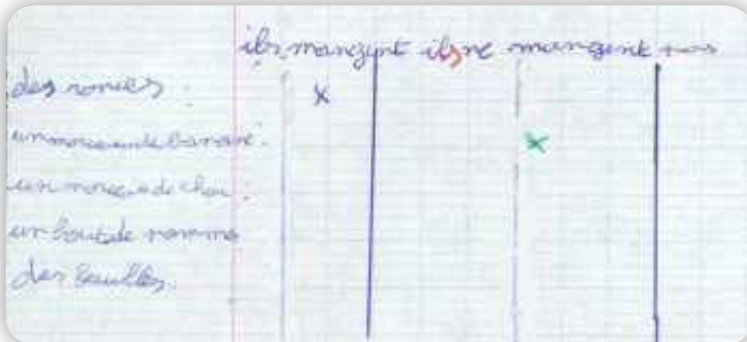 ils mangent ils ne mangent pas
des ronces
x
un morceau de banane.
x
un morceau de chou.
un bout de pomme
des feuilles.